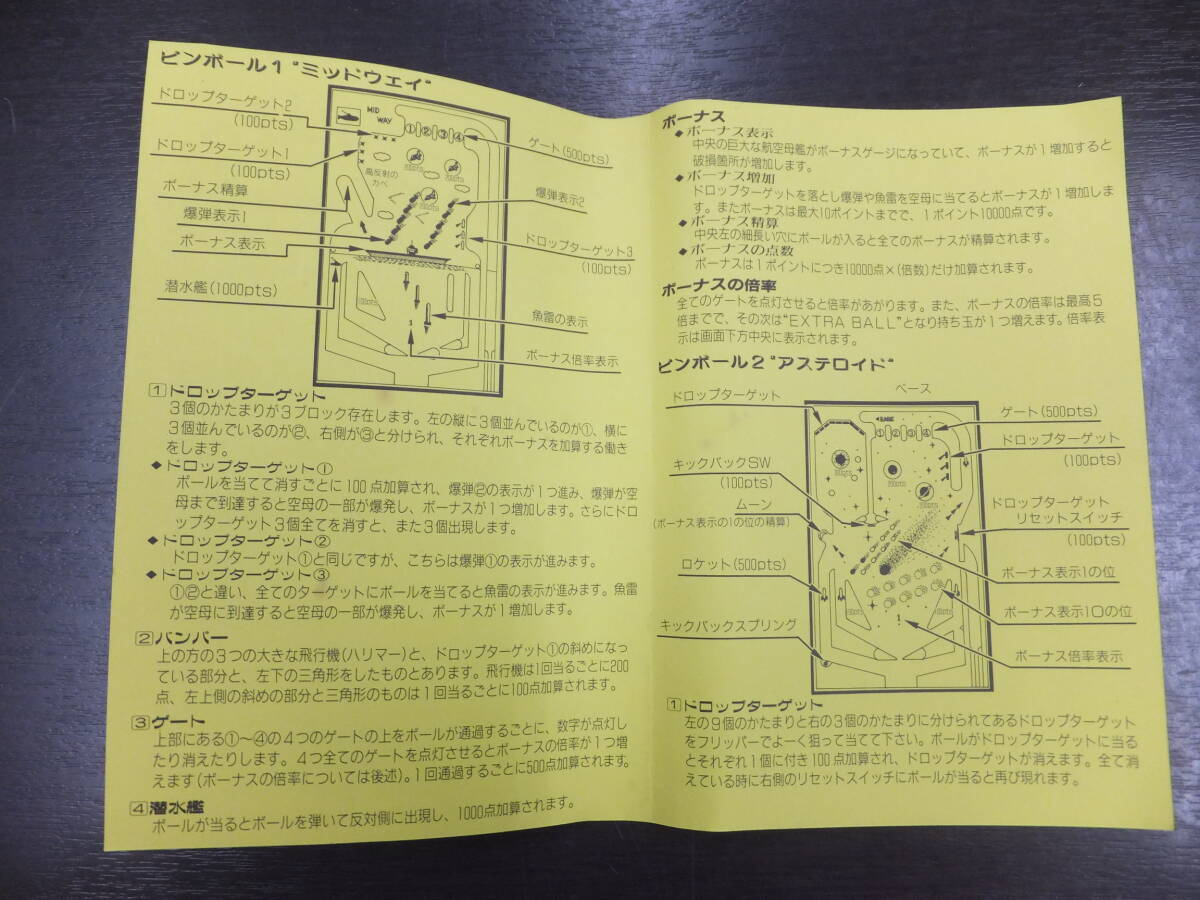 ピンボール1 "ミッドウェイ"
ドロップターゲット2
(100pts)
ドロップターゲット1
(100pts)
ボーナス精算
爆弾表示1
ボーナス表示
潜水艦(1000pts)
MID
WAY
①②③④
高反射の
カベ
ゲート(500pts)
爆弾表示2
ドロップターゲット3
(100pts)
魚雷の表示
ボーナス倍率表示
1ドロップターゲット
3個のかたまりが3ブロック存在します。左の縦に3個並んでいるのが①、横に
3個並んでいるのが②、右側が③と分けられ、それぞれボーナスを加算する働き
をします。
◆ドロップターゲット①
ボールを当てて消すごとに100点加算され、爆弾②の表示が1つ進み、爆弾が空
母まで到達すると空母の一部が爆発し、ボーナスが1つ増加します。さらにドロ
ップターゲット3個全てを消すと、また3個出現します。
◆ドロップターゲット②
ドロップターゲット①と同じですが、こちらは爆弾①の表示が進みます。
◆ドロップターゲット③
①②と違い、全てのターゲットにボールを当てると魚雷の表示が進みます。魚雷
が空母に到達すると空母の一部が爆発し、ボーナスが1増加します。
2バンパー
上の方の3つの大きな飛行機(ハリマー)と、ドロップターゲット①の斜めになっ
ている部分と、左下の三角形をしたものとあります。飛行機は1回当るごとに200
点、左上側の斜めの部分と三角形のものは1回当るごとに100点加算されます。
3ゲート
上部にある①～④の4つのゲートの上をボールが通過するごとに、数字が点灯し
たり消えたりします。4つ全てのゲートを点灯させるとボーナスの倍率が1つ増
えます(ボーナスの倍率については後述)。1回通過するごとに500点加算されます。
4潜水艦
ボールが当るとボールを弾いて反対側に出現し、1000点加算されます。
ボーナス
◆ボーナス表示
中央の巨大な航空母艦がボーナスゲージになっていて、ボーナスが1増加すると
破損箇所が増加します。
◆ボーナス増加
ドロップターゲットを落とし爆弾や魚雷を空母に当てるとボーナスが1増加しま
す。またボーナスは最大10ポイントまでで、1ポイント10000点です。
◆ボーナス精算
中央左の細長い穴にボールが入ると全てのボーナスが精算されます。
◆ボーナスの点数
ボーナスは1ポイントにつき10000点×(倍数)だけ加算されます。
ボーナスの倍率
全てのゲートを点灯させると倍率があがります。また、ボーナスの倍率は最高5
倍までで、その次は"EXTRA BALL"となり持ち玉が1つ増えます。倍率表
示は画面下方中央に表示されます。
ピンボール2 "アステロイド"
ドロップターゲット
キックバックSW
(100pts)
ムーン
(ボーナス表示の1の位の精算)
ロケット(500pts)
キックバックスプリング
ベース
◀BASE
①②③④
ゲート(500pts)
ドロップターゲット
(100pts)
ドロップターゲット
リセットスイッチ
(100pts)
ボーナス表示1の位
ボーナス表示10の位
ボーナス倍率表示
1ドロップターゲット
左の9個のかたまりと右の3個のかたまりに分けられてあるドロップターゲット
をフリッパーでよーく狙って当てて下さい。ボールがドロップターゲットに当る
とそれぞれ1個に付き100点加算され、ドロップターゲットが消えます。全て消
えている時に右側のリセットスイッチにボールが当ると再び現れます。